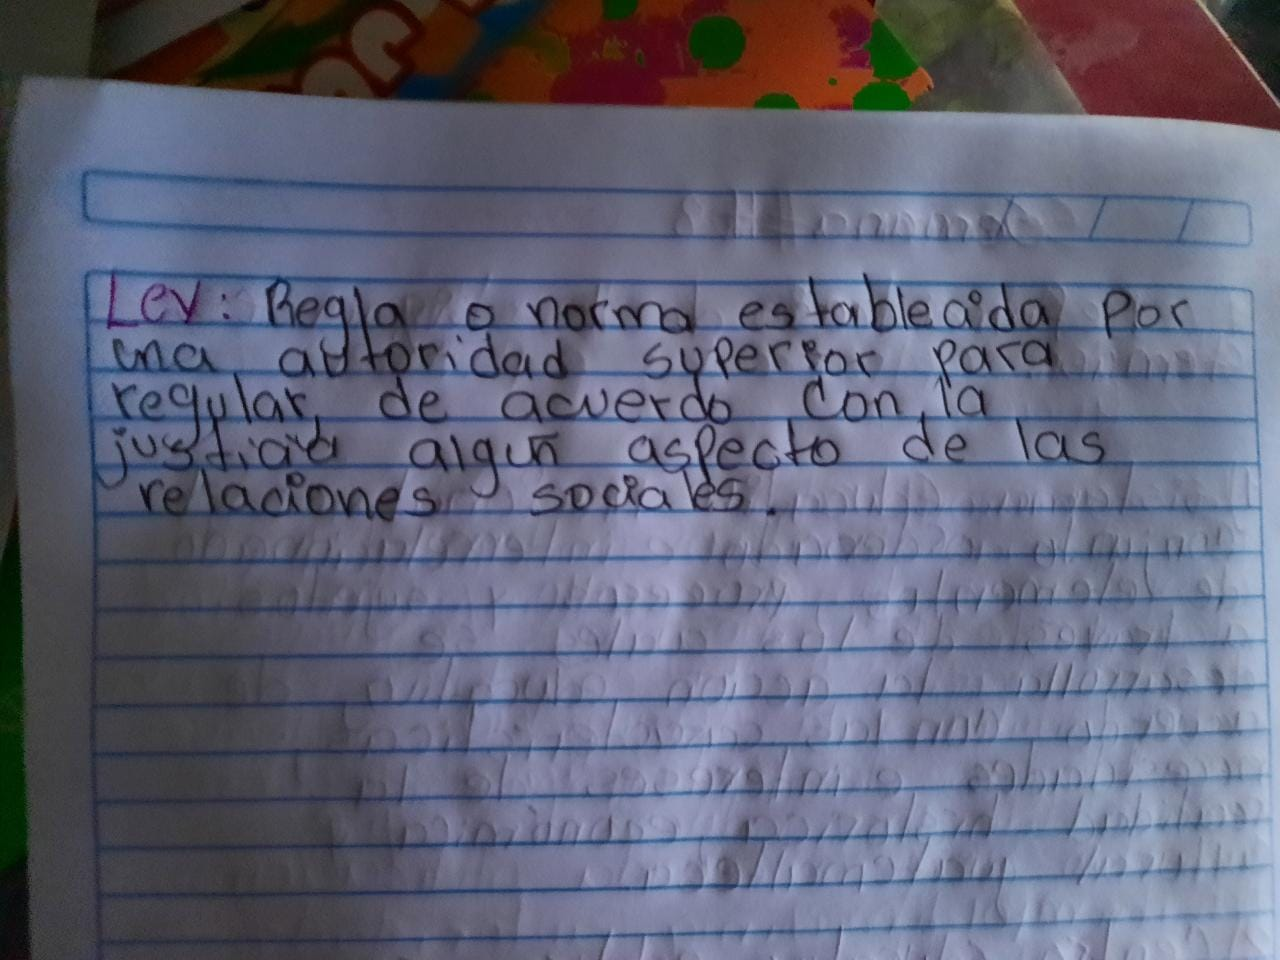 Ley: Regla o norma establecida por
una autoridad superior para
regular, de acuerdo con la
justicia algun aspecto de las
relaciones sociales.